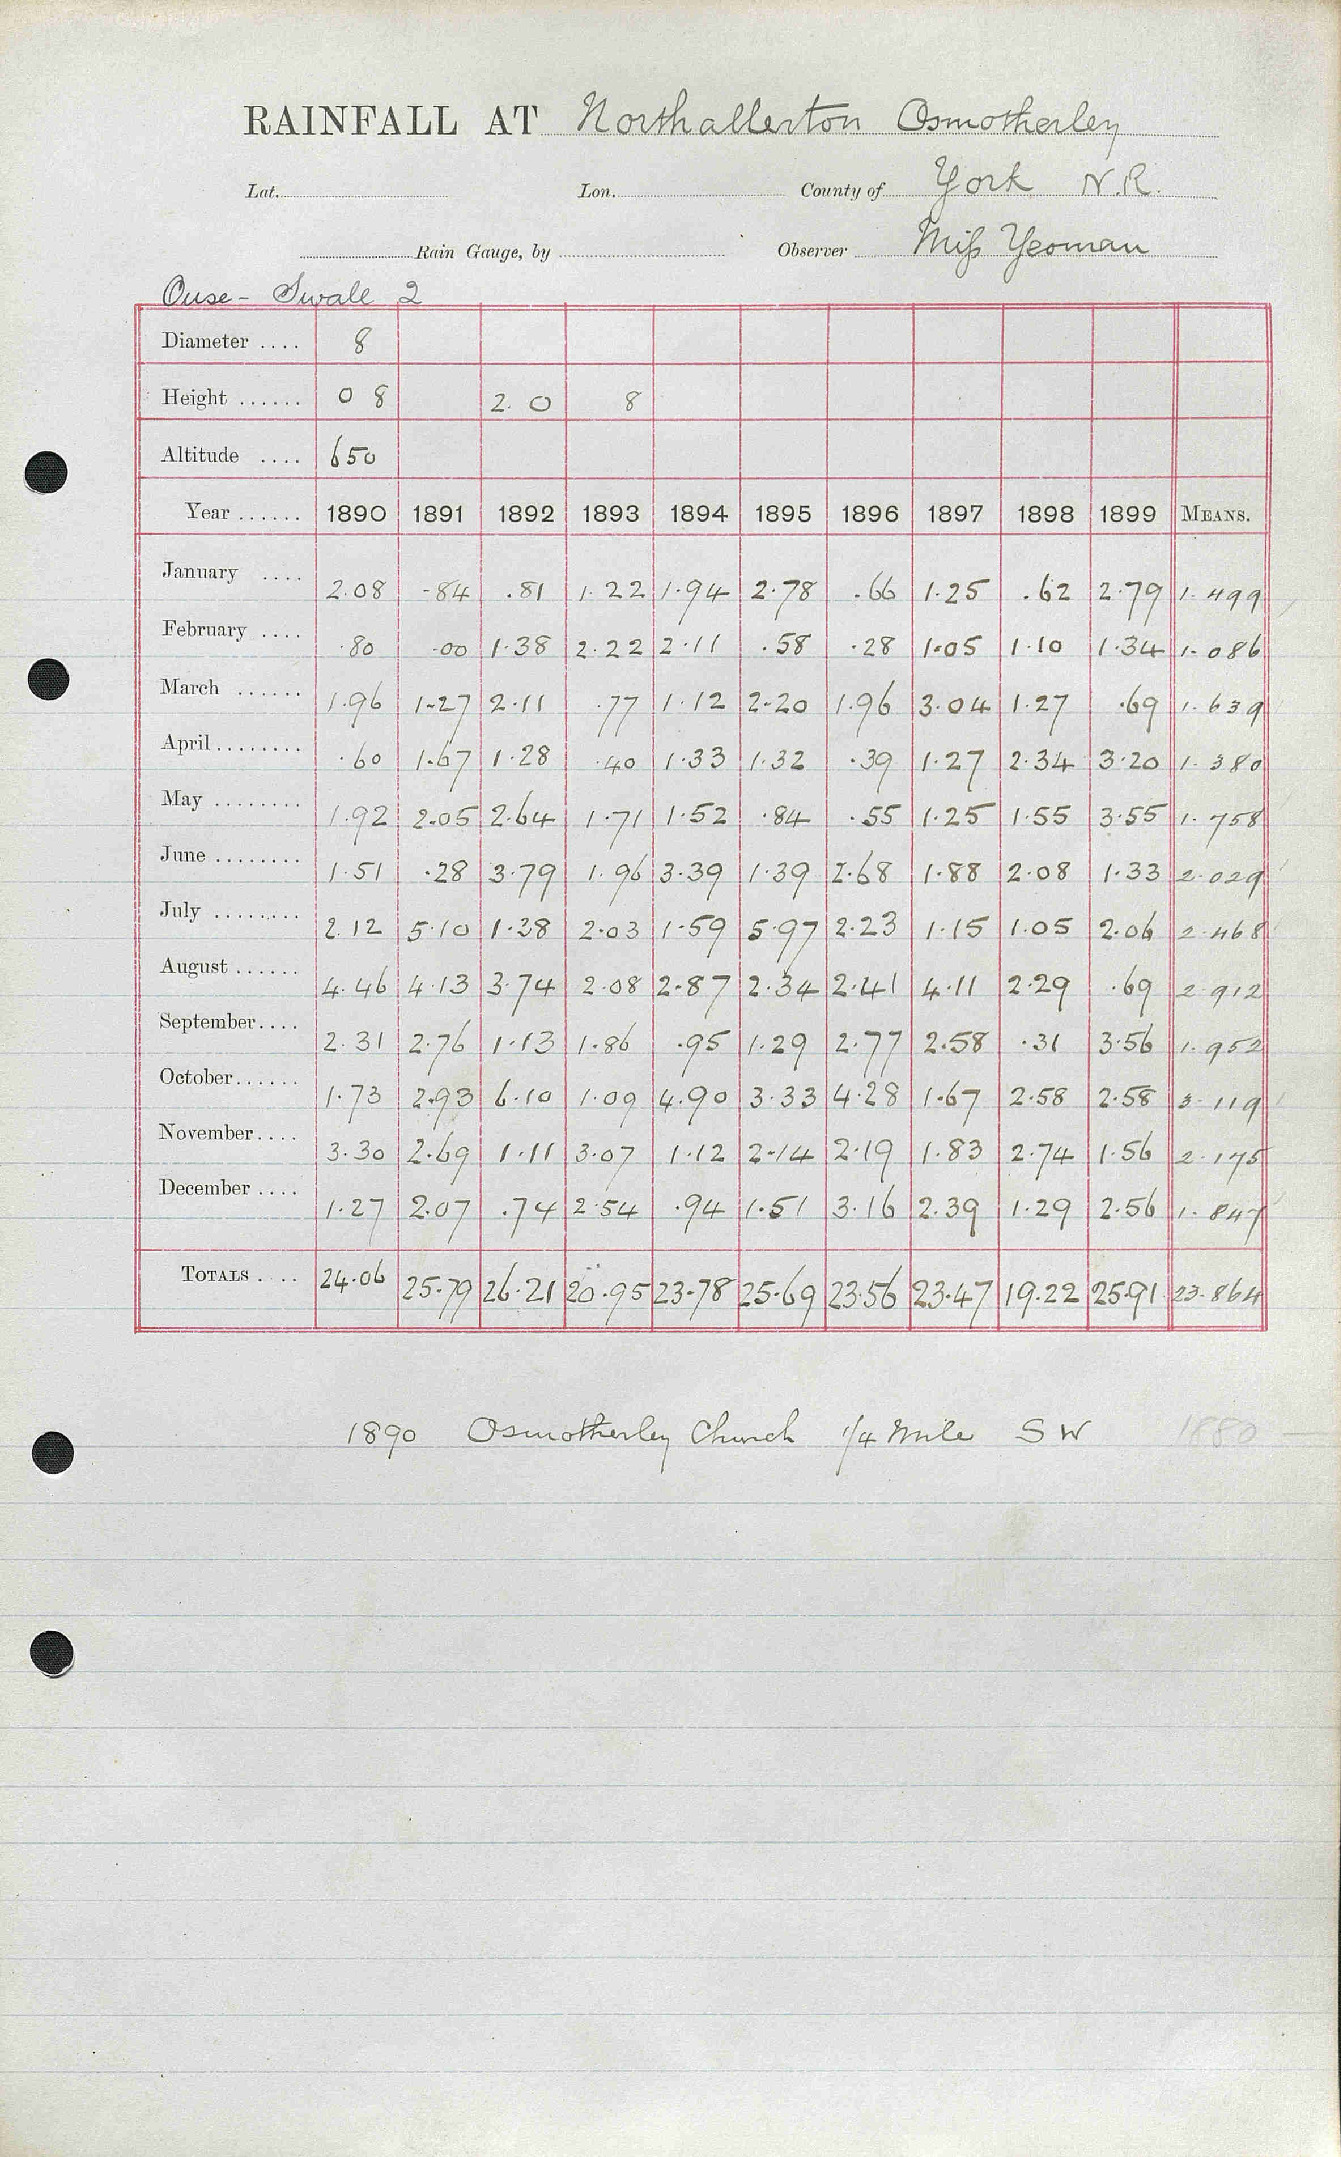 RAINFALL AT Northallerton Osmotherley
Lat. Lon. County of York N.R.
Rain Gauge, by Observer Miss Yeoman
Ouse - Swale 2
Diameter .... 8
Height ...... 0 8 2. 0 8
Altitude .... 650
Year ...... 1890 1891 1892 1893 1894 1895 1896 1897 1898 1899 MEANS.
January .... 2.08 .84 .81 1.22 1.94 2.78 .66 1.25 .62 2.79 1.499
February .... .80 .00 1.38 2.22 2.11 .58 .28 1.05 1.10 1.34 1.086
March ...... 1.96 1.27 2.11 .77 1.12 2.20 1.96 3.04 1.27 .69 1.639
April ........ .60 1.67 1.28 .40 1.33 1.32 .39 1.27 2.34 3.20 1.380
May ........ 1.92 2.05 2.64 1.71 1.52 .84 .55 1.25 1.55 3.55 1.758
June ........ 1.51 .28 3.79 1.96 3.39 1.39 2.68 1.88 2.08 1.33 2.029
July ........ 2.12 5.10 1.38 2.03 1.59 5.97 2.23 1.15 1.05 2.06 2.468
August ...... 4.46 4.13 3.74 2.08 2.87 2.34 2.41 4.11 2.29 .69 2.912
September .... 2.31 2.76 1.13 1.86 .95 1.29 2.77 2.58 .31 3.56 1.952
October ...... 1.73 2.93 6.10 1.09 4.90 3.33 4.28 1.67 2.58 2.58 3.119
November .... 3.30 2.69 1.11 3.07 1.12 2.14 2.19 1.83 2.74 1.56 2.175
December .... 1.27 2.07 .74 2.54 .94 1.51 3.16 2.39 1.29 2.56 1.847
TOTALS .... 24.06 25.79 26.21 20.95 23.78 25.69 23.56 23.47 19.22 25.91 23.864
1890 Osmotherley Church 1/4 mile SW 1880